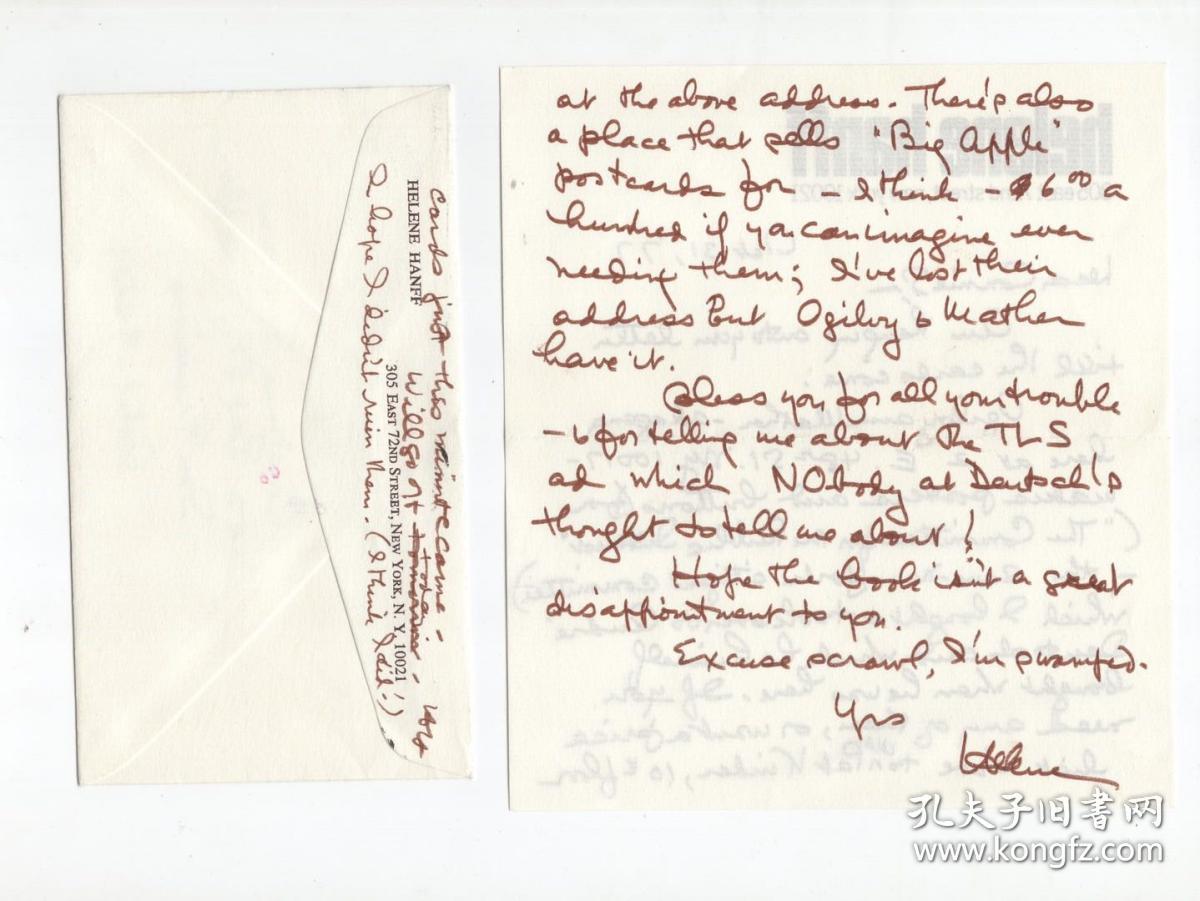 cards just this minute came -
HELENE HANFF
Will go out today -
305 EAST 72ND STREET, NEW YORK, N. Y. 10021
I hope I didn't ruin them. (I think I did!)
at the above address. There's also
a place that sells "Big Apple"
postcards for - I think - $6.00 a
hundred if you can imagine ever
needing them; I've lost their
address But Ogilvy & Mather
have it.
Bless you for all your trouble
- & for telling me about the TLS
ad which NObody at Deutsch's
thought to tell me about!
Hope the book isn't a great
disappointment to you.
Excuse scrawl, I'm swamped.
Yrs
Helene
孔夫子旧书网
www.kongfz.com